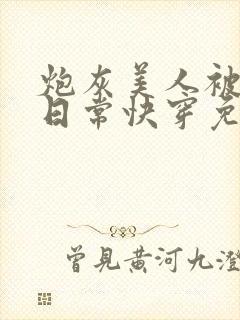 炮灰美人被
日常快穿免
曾見黄河九澄